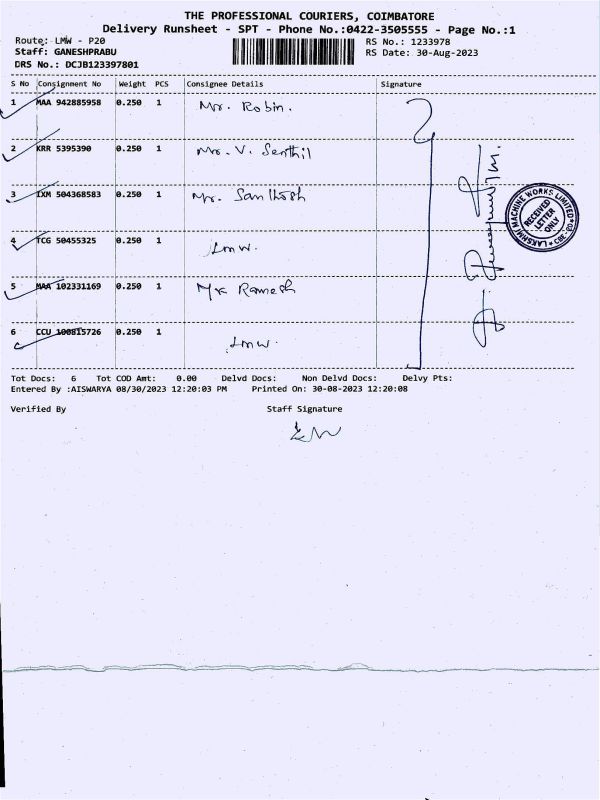 THE PROFESSIONAL COURIERS, COIMBATORE
Delivery Runsheet - SPT - Phone No.:0422-3505555 - Page No.:1
Route: LMW - P20 RS No.: 1233978
Staff: GANESHPRABU RS Date: 30-Aug-2023
DRS No.: DCJB123397801
S No Consignment No Weight PCS Consignee Details Signature
1 MAA 942885958 0.250 1 Mr. Robin.
2 KRR 5395390 0.250 1 Mr. V. Senthil
3 IXM 504368583 0.250 1 Mr. Santhosh
4 TCG 50455325 0.250 1 Lmw.
5 MAA 102331169 0.250 1 Mr Ramesh
6 CCU 100815726 0.250 1 Lmw.
LAKSHMI MACHINE WORKS LIMITED
RECEIVED
LETTER
ONLY
Tot Docs: 6 Tot COD Amt: 0.00 Delvd Docs: Non Delvd Docs: Delvy Pts:
Entered By :AISWARYA 08/30/2023 12:20:03 PM Printed On: 30-08-2023 12:20:08
Verified By Staff Signature